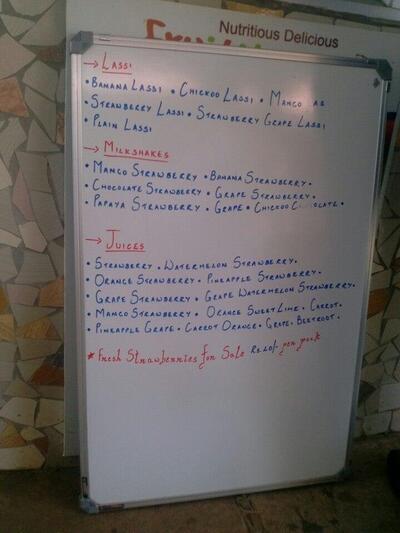 Nutritious Delicious
→ LASSI
• BANANA LASSI • CHICKOO LASSI • MANGO
• STRAWBERRY LASSI • STRAWBERRY GRAPE LASSI
• PLAIN LASSI
→ MILKSHAKES
• MANGO STRAWBERRY • BANANA STRAWBERRY.
• CHOCOLATE STRAWBERRY • GRAPE STRAWBERRY.
• PAPAYA STRAWBERRY • GRAPE • CHICKOO •
→ JUICES
• STRAWBERRY • WATERMELON STRAWBERRY.
• ORANGE STRAWBERRY • PINEAPPLE STRAWBERRY.
• GRAPE STRAWBERRY • GRAPE WATERMELON STRAWBERRY.
• MANGO STRAWBERRY • ORANGE SWEET LIME • CARROT.
• PINEAPPLE GRAPE • CARROT ORANGE • GRAPE • BEETROOT.
* Fresh Strawberries for Sale per